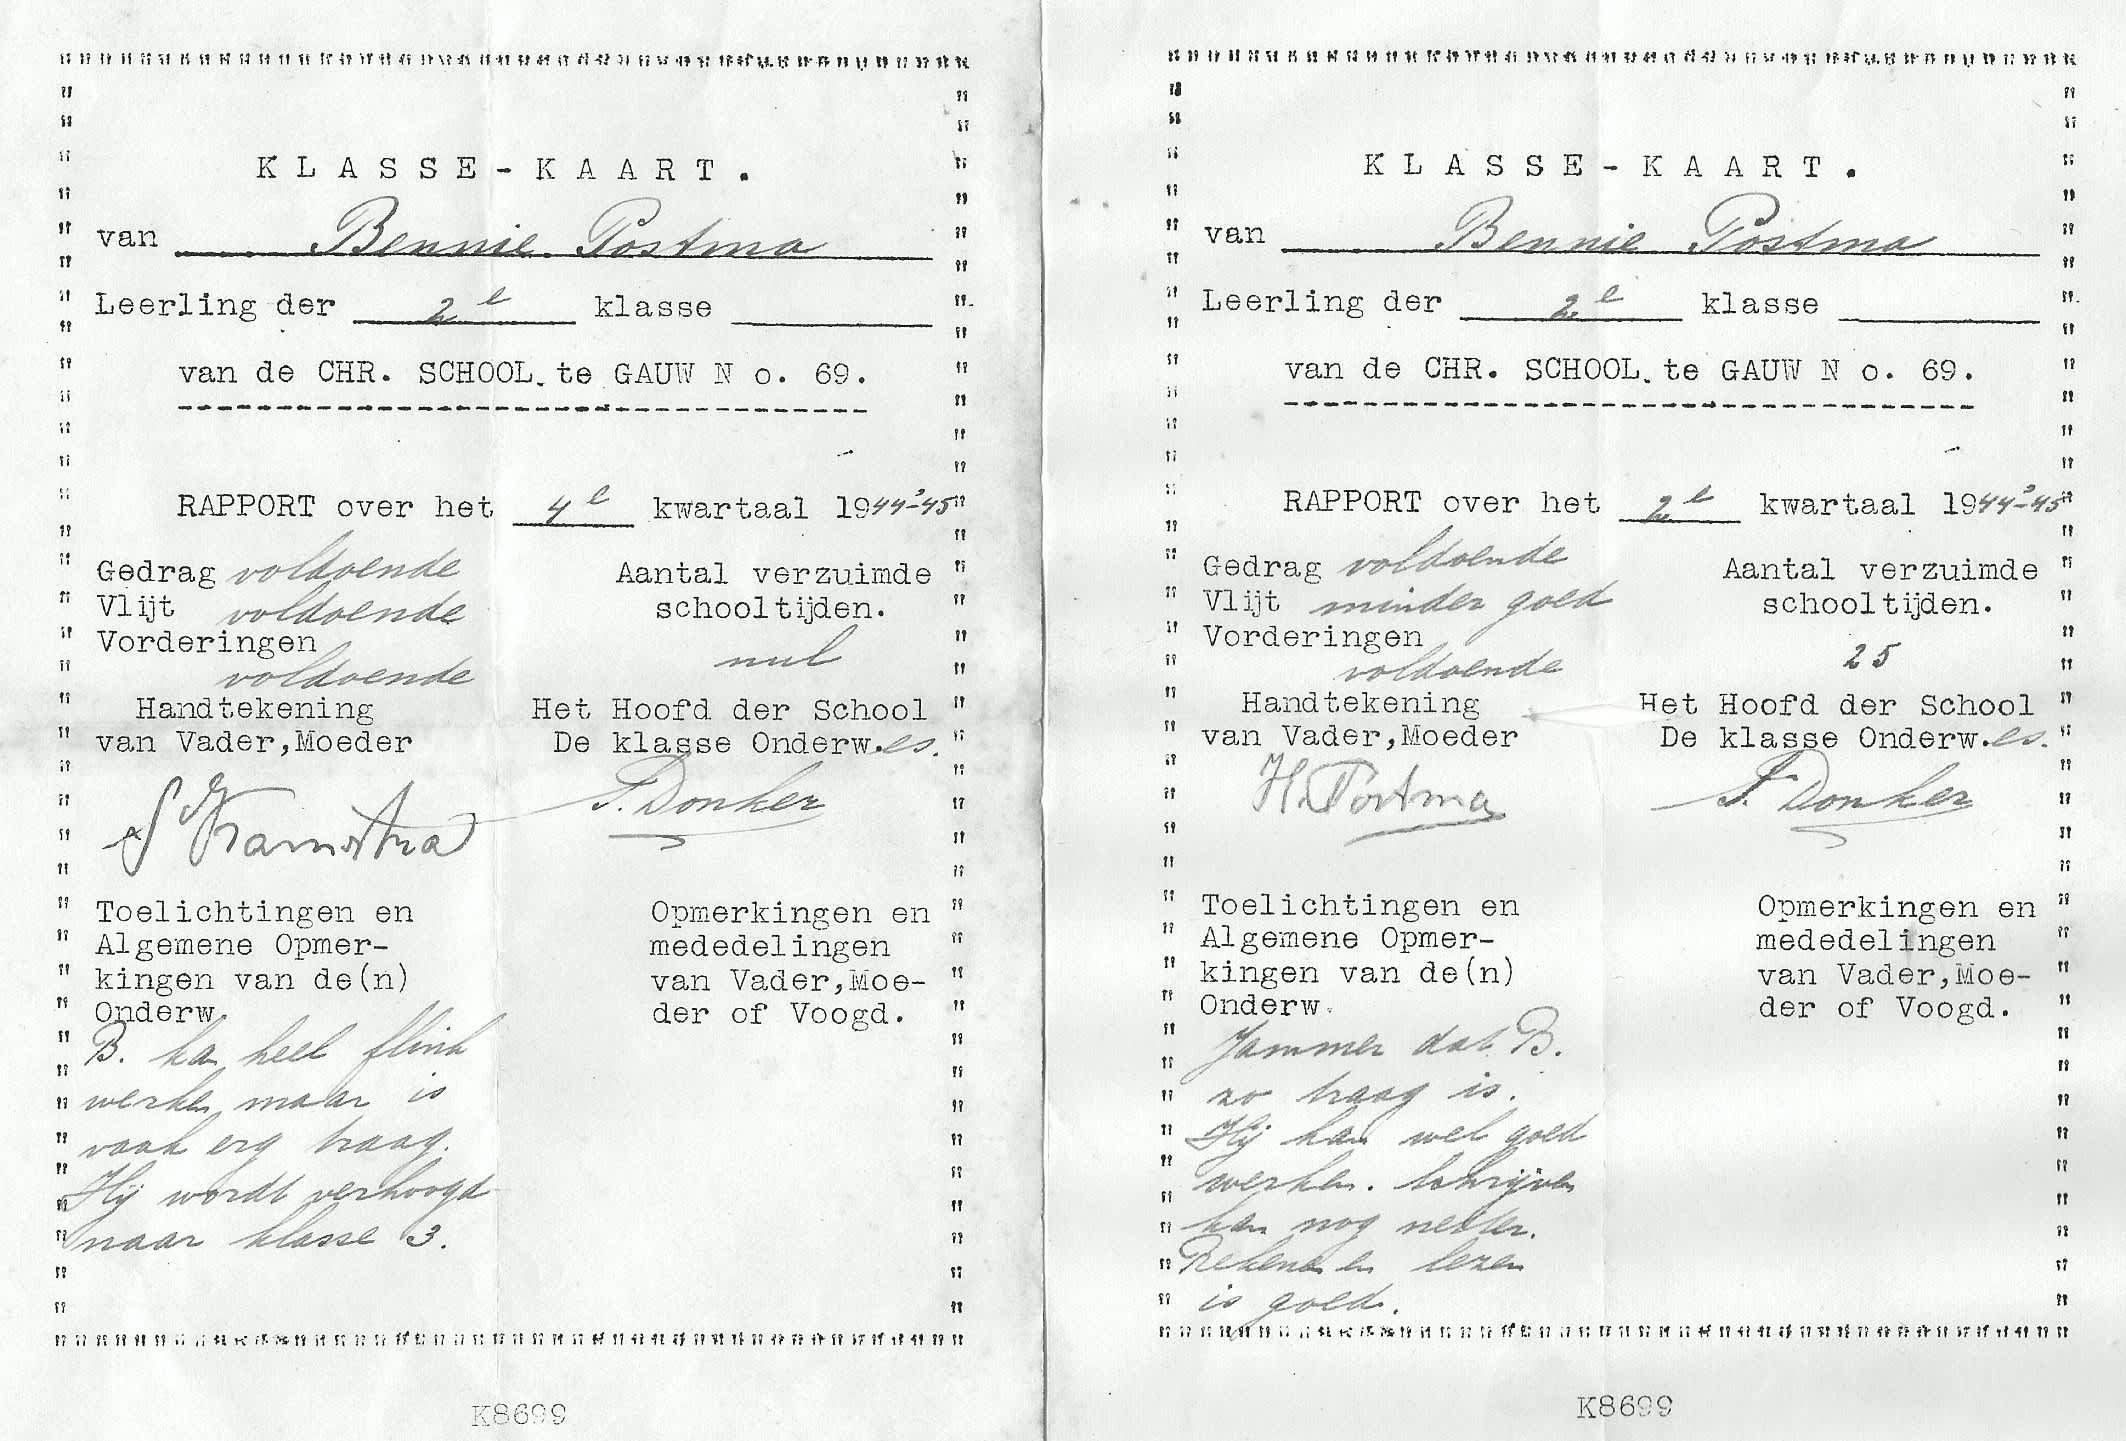 KLASSE-KAART.
van Bennie Postma
Leerling der 2e klasse
van de CHR. SCHOOL. te GAUW No. 69.
RAPPORT over het 4e kwartaal 1944-'45
Gedrag voldoende
Vlijt voldoende
Vorderingen
voldoende
Aantal verzuimde
schooltijden.
nul
Handtekening
van Vader,Moeder
Het Hoofd der School
De klasse Onderw.es.
S Kramstra
T. Donker
Toelichtingen en
Algemene Opmer-
kingen van de(n)
Onderw.
B. kan heel flink
werken maar is
vaak erg traag.
Hij wordt verhoogd
naar klasse 3.
Opmerkingen en
mededelingen
van Vader,Moe-
der of Voogd.
K8699
KLASSE-KAART.
van Bennie Postma
Leerling der 2e klasse
van de CHR. SCHOOL. te GAUW No. 69.
RAPPORT over het 2e kwartaal 1944-'45
Gedrag voldoende
Vlijt minder goed
Vorderingen
voldoende
Aantal verzuimde
schooltijden.
25
Handtekening
van Vader,Moeder
Het Hoofd der School
De klasse Onderw.es.
H. Postma
T. Donker
Toelichtingen en
Algemene Opmer-
kingen van de(n)
Onderw.
Jammer dat B.
zo traag is.
Hij kan wel goed
werken. Schrijven
kan nog netter.
Rekenen en lezen
is goed.
Opmerkingen en
mededelingen
van Vader,Moe-
der of Voogd.
K8699